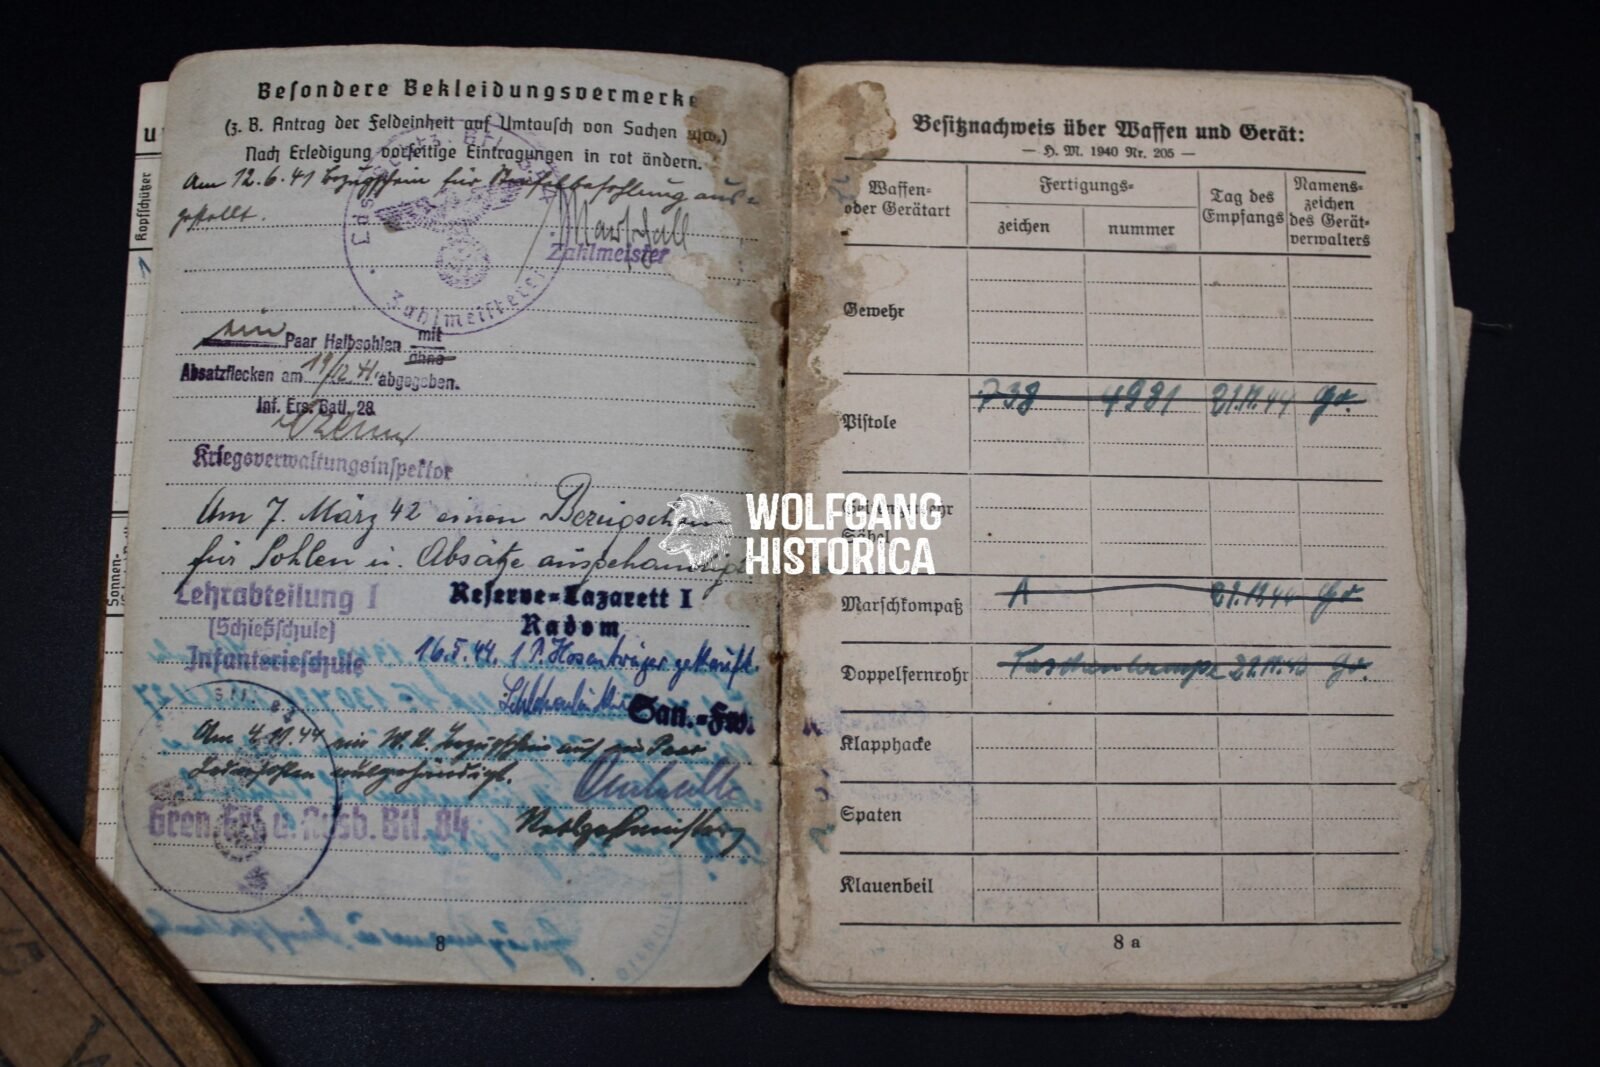 Besondere Bekleidungsvermerke
(z. B. Antrag der Feldeinheit auf Umtausch von Sachen usw.)
Nach Erledigung vorseitige Eintragungen in rot ändern.
Am 12.6.41 Bezugschein für Stiefelbesohlung aus-
gestellt.
Marschall
Zahlmeister
Zahlmeisterei
ein Paar Halbsohlen mit
ohne
Absatzflecken am 19/12.41. abgegeben.
Inf. Ers. Batl. 28
Kriegsverwaltungsinspektor
Am 7. März 42 einen Bezugschein
für Sohlen u. Absätze ausgehändigt
Lehrabteilung I
(Schießschule)
Infanterieschule
Reserve-Lazarett I
Radom
16.5.44. 1 P. Hosenträger gekauft.
San.-Fw.
Am 4.11.44 ein W.K. Bezugschein auf ein Paar
Ledersohlen ausgehändigt.
Gren. Ers. u. Ausb. Btl. 84
8
Kopfschützer
1
Sonnen-
WOLFGANG
HISTORICA
Besitznachweis über Waffen und Gerät:
— H. M. 1940 Nr. 205 —
Waffen-
oder Gerätart
Fertigungs-
zeichen
nummer
Tag des
Empfangs
Namens-
zeichen
des Gerät-
verwalters
Gewehr
Pistole 738 4981 21.11.44 Gr.
Seitengewehr
Säbel
Marschkompaß A 21.11.44 Gr
Doppelfernrohr Taschenlampe 22.11.44 Gr.
Klapphacke
Spaten
Klauenbeil
8 a